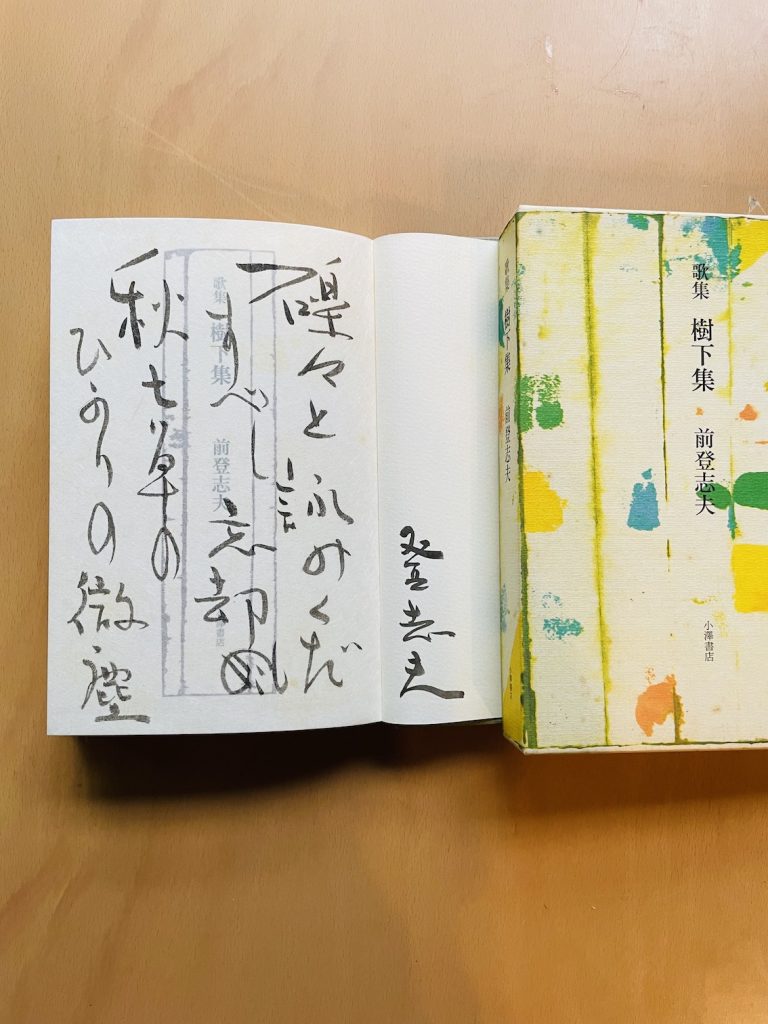 々と詠みくだ
すべし忘却
秋七草の
ひかりの微塵
歌集 樹下集 前登志夫
書店
登志夫
歌集 樹下集 前登志夫
歌集 樹下集 前登志夫
小澤書店